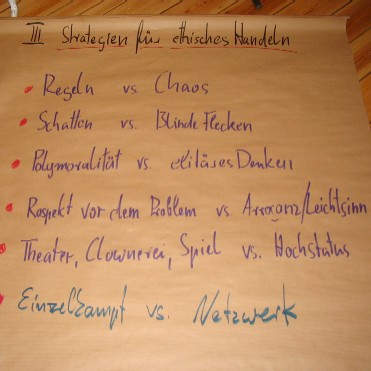 III Strategien für ethisches Handeln
Regeln vs. Chaos
Schatten vs. Blinde Flecken
Polymoralität vs. elitäres Denken
Respekt vor dem Problem vs. Arroganz/Leichtsinn
Theater, Clownerei, Spiel vs. Hochstatus
Einzelkampf vs. Netzwerk